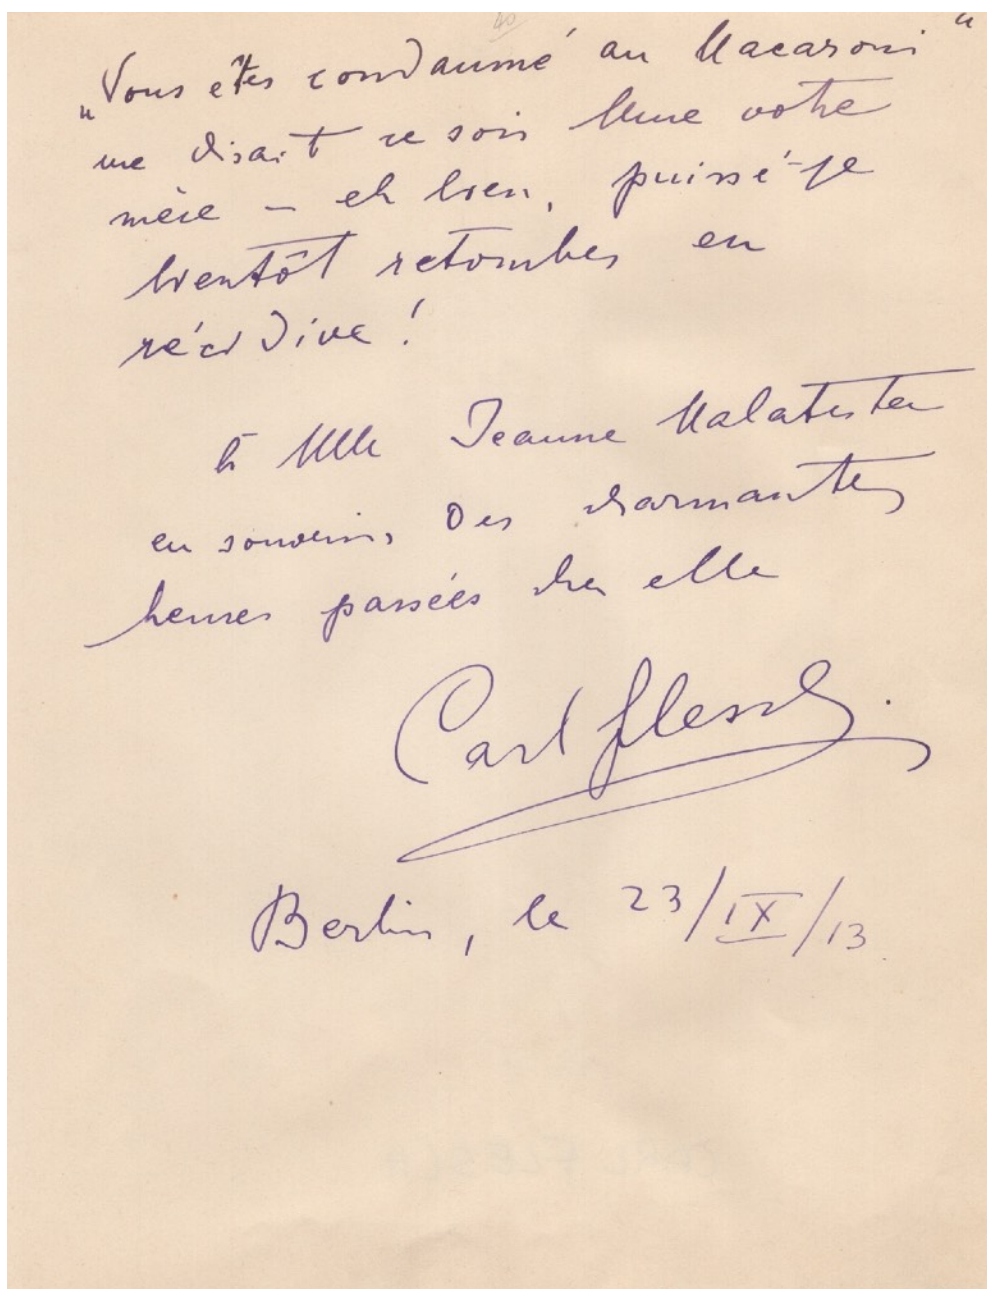 „Vous êtes condamné au Macaroni“
me disait ce soir Mme votre
mère – eh bien, puissé-je
bientôt retomber en
récidive !
à Mlle Jeanne Malatesta
en souvenir des charmantes
heures passées chez elle
Carl Flesch
Berlin, le 23/IX/13